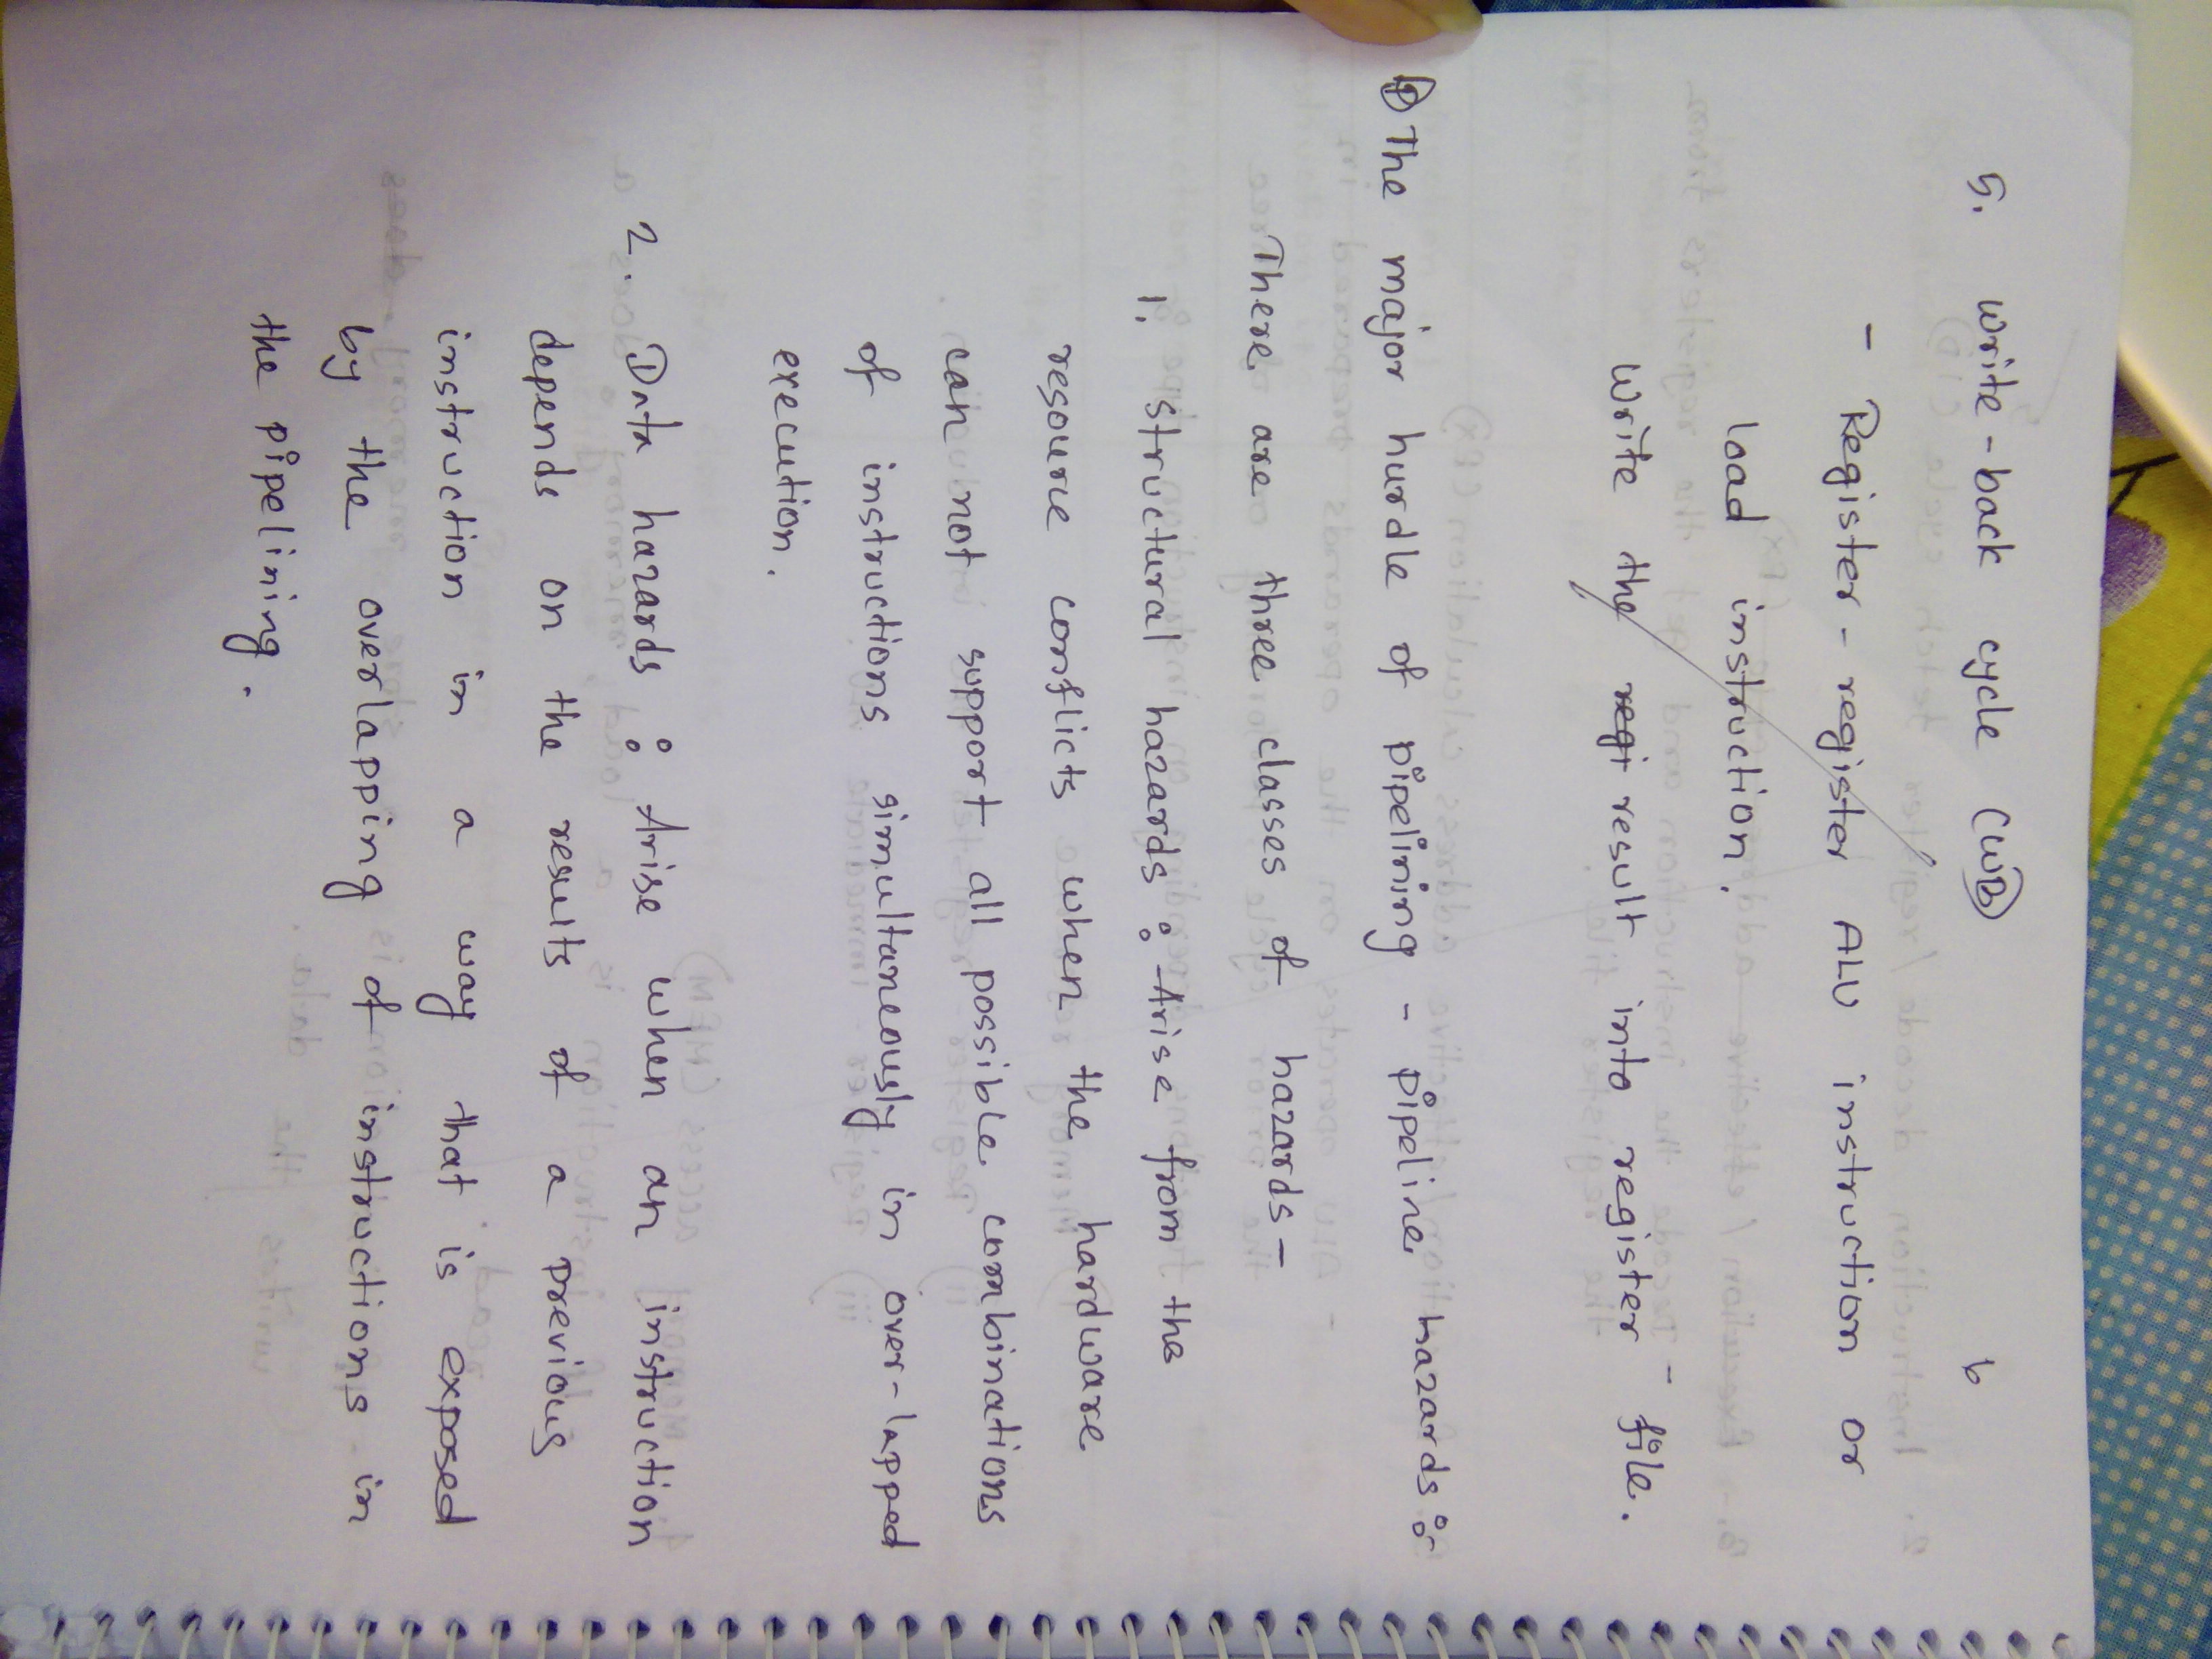 5. Write-back cycle (WB)
6
- Register-register ALU instruction or
load instruction.
Write the regi result into register-file.
The major hurdle of pipelining - pipeline hazards :-
There are three classes of hazards -
1. Structural hazards : Arise from the
resource conflicts when the hardware
can not support all possible combinations
of instructions simultaneously in over-lapped
execution.
2. Data hazards : Arise when an instruction
depends on the results of a previous
instruction in a way that is exposed
by the overlapping of instructions in
the pipelining.